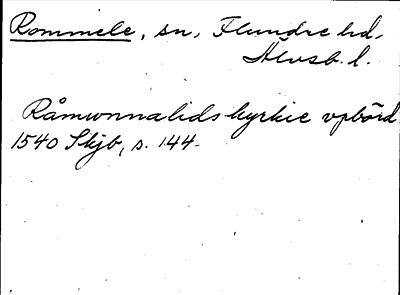 Rommele, sn, Flundre hd,
Älvsb. l.
Råmwnnalids kyrkie vpbörd
1540 Skjb, s. 144.